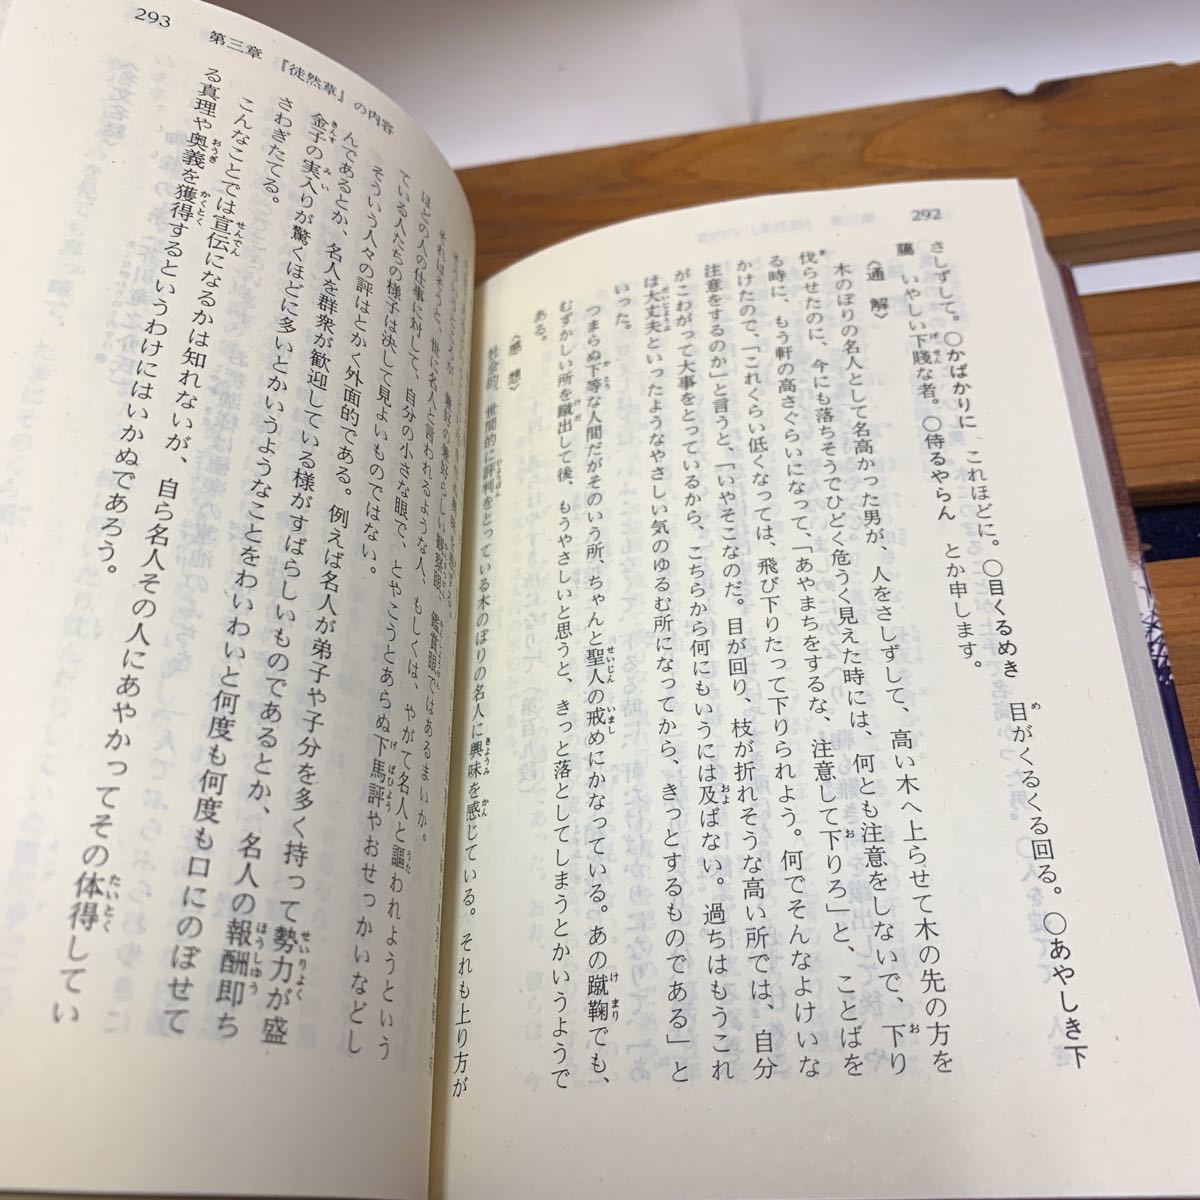 292
さしずして。〇かばかりに　これほどに。〇目くるめき　目がくるくる回る。〇あやしき下
﨟　いやしい下賤な者。〇侍るやらん　とか申します。
〈通　解〉
木のぼりの名人として名高かった男が、人をさしずして、高い木へ上らせて木の先の方を
伐らせたのに、今にも落ちそうでひどく危うく見えた時には、何とも注意をしないで、下り
る時に、もう軒の高さぐらいになって、「あやまちをするな、注意して下りろ」と、ことばを
かけたので、「これぐらい低くなっては、飛び下りたって下りられよう。何でそんなよけいな
注意をするのか」と言うと、「いやそこなのだ。目が回り、枝が折れそうな高い所では、自分
がこわがって大事をとっているから、こちらから何にもいうには及ばない。過ちはもうこれ
は大丈夫といったようなやさしい気のゆるむ所になってから、きっとするものである」と
いった。
つまらぬ下等な人間だがそのいう所、ちゃんと聖人の戒めにかなっている。あの蹴鞠でも、
むずかしい所を蹴出して後、もうやさしいと思うと、きっと落としてしまうとかいうようで
ある。
〈感　想〉
社会的、世間的に評判をとっている木のぼりの名人に興味を感じている。それも上り方が
293　第三章　『徒然草』の内容
それはそうと、世に名人と言われるような人、もしくは、やがて名人と謳われようという
ほどの人の仕事に対して、自分の小さな眼で、とやこうとあらぬ下馬評やおせっかいなどし
ている人たちの様子は決して見よいものではない。
そういう人々の評はとかく外面的である。例えば名人が弟子や子分を多く持って勢力が盛
んであるとか、名人を群衆が歓迎している様がすばらしいものであるとか、名人の報酬即ち
金子の実入りが驚くほどに多いとかいうようなことをわいわいと何度も何度も口にのぼせて
さわぎたてる。
こんなことでは宣伝になるかは知れないが、自ら名人その人にあやかってその体得してい
る真理や奥義を獲得するというわけにはいかぬであろう。